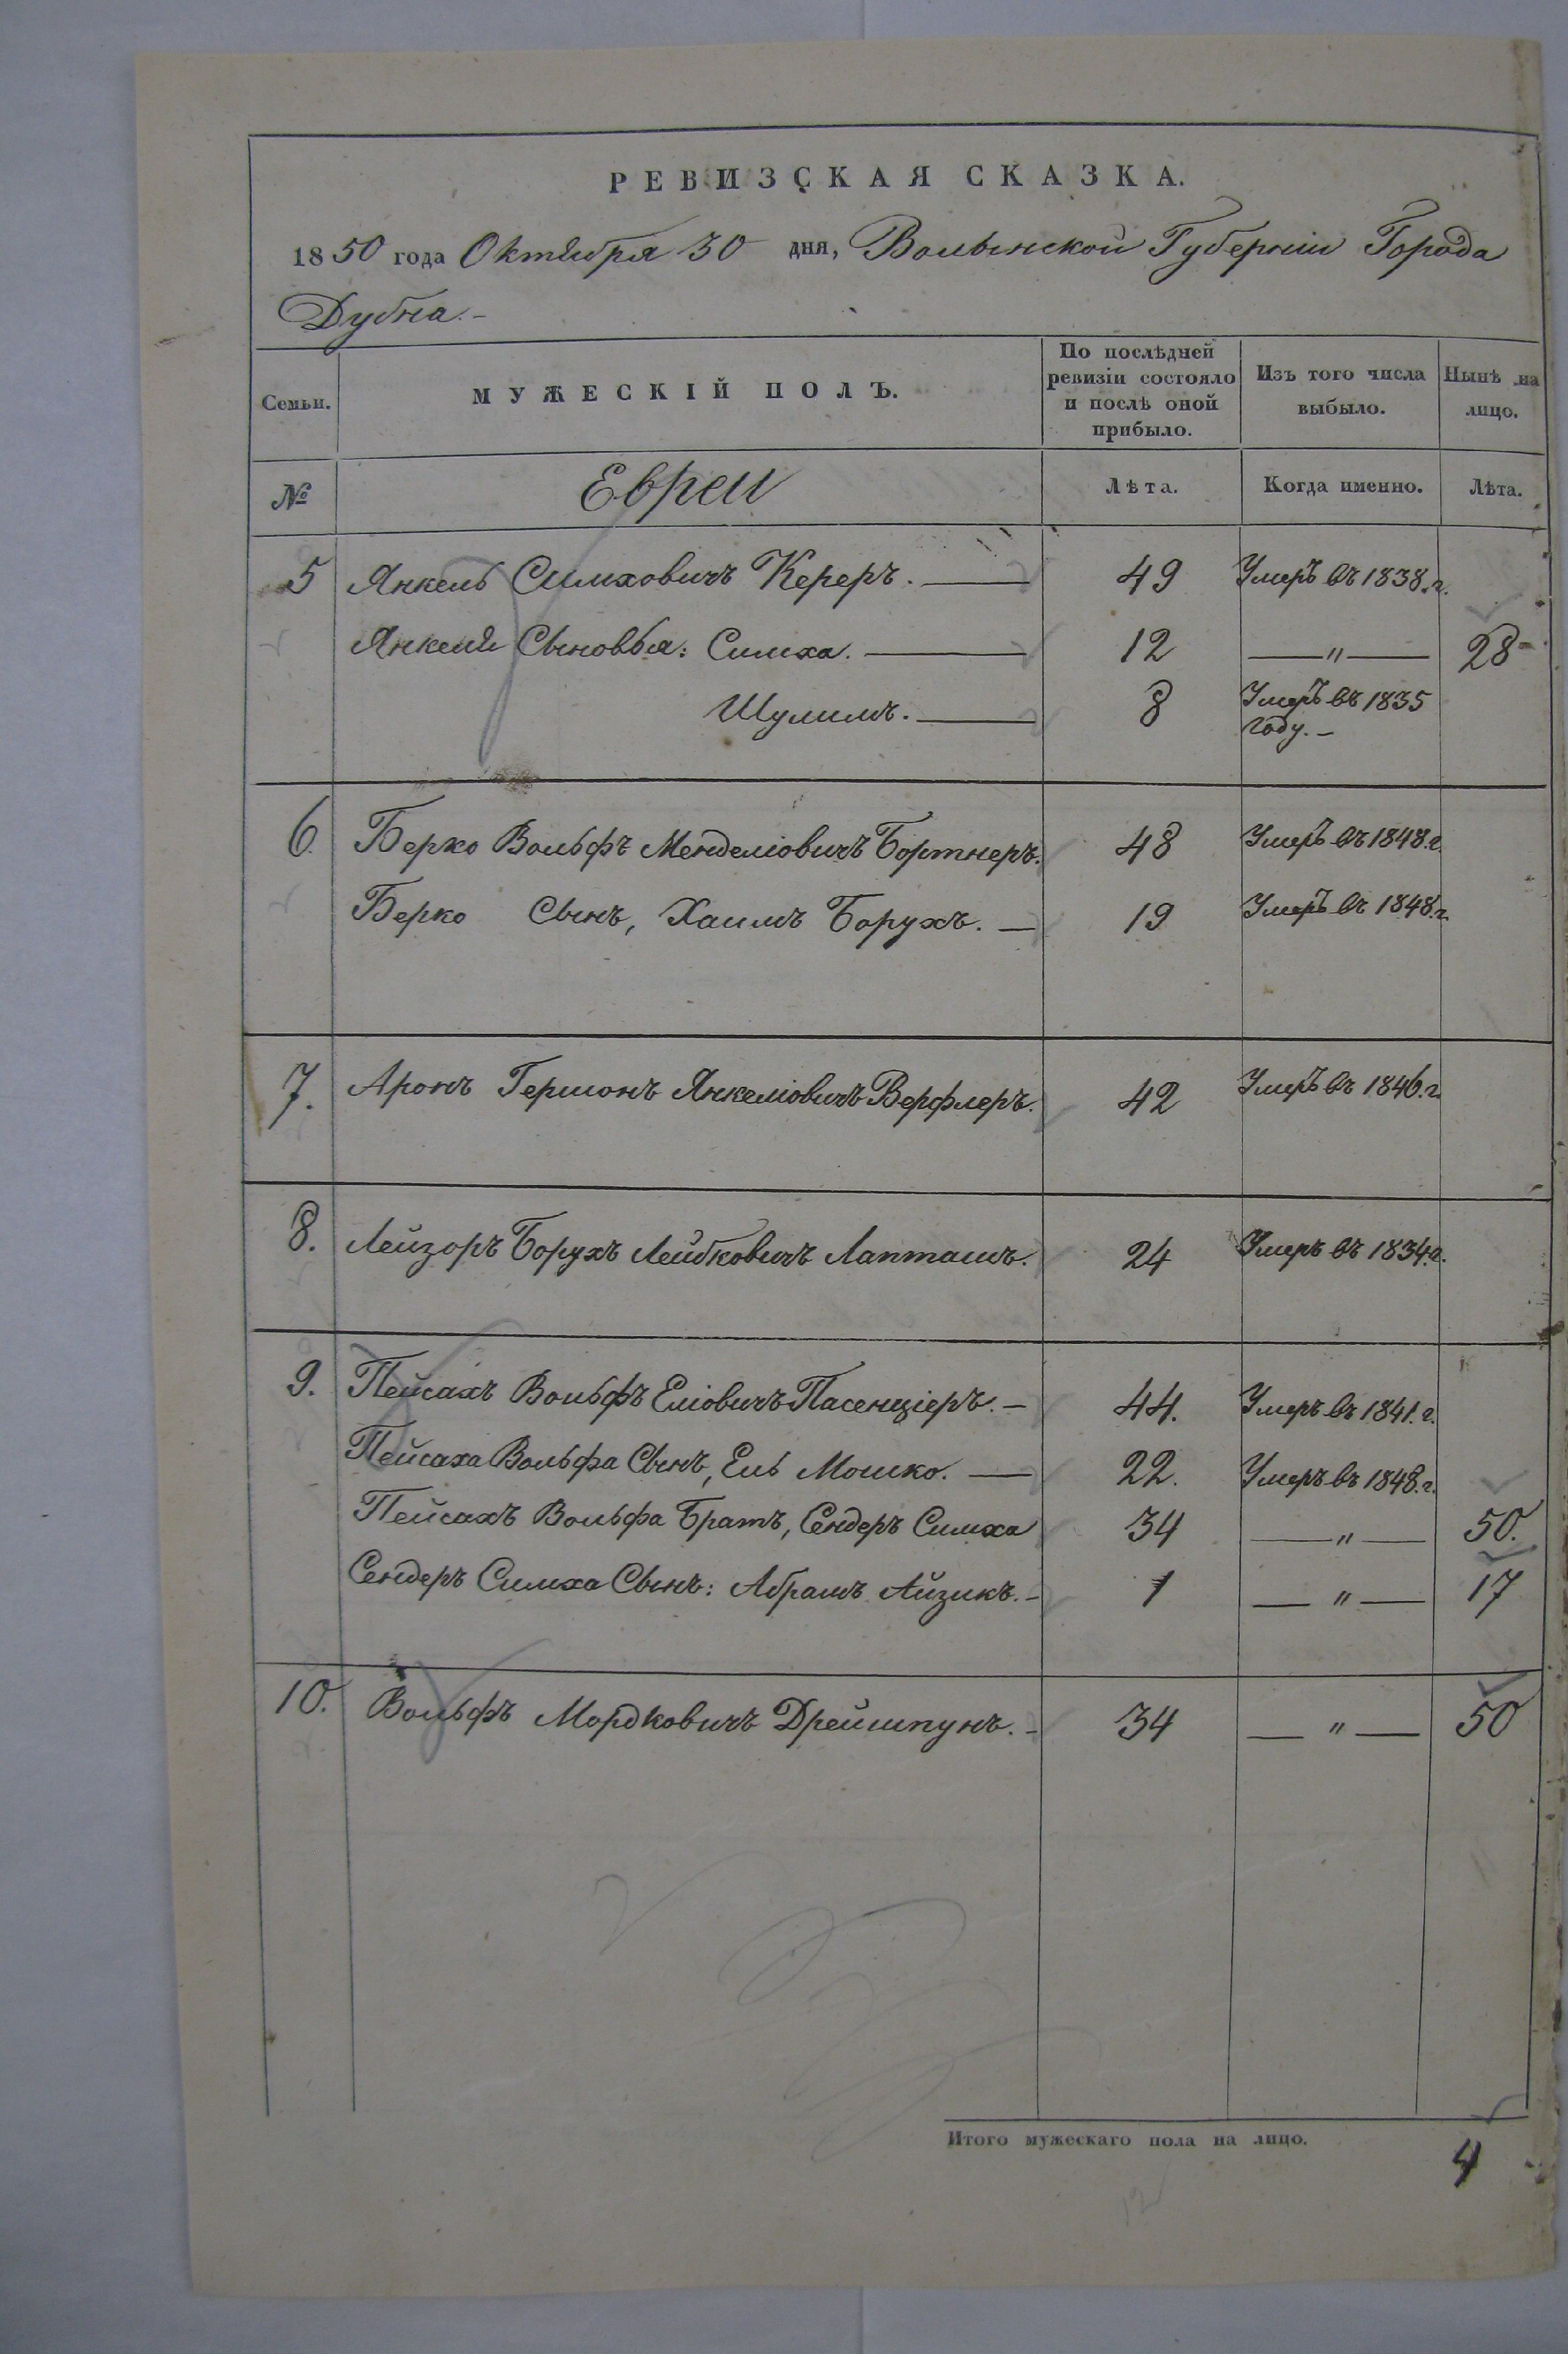 РЕВИЗСКАЯ СКАЗКА.
1850 года Октября 30 дня, Волынской Губерніи Города
Дубна.-
Семьи. МУЖЕСКІЙ ПОЛЪ. По послѣдней ревизіи состояло и послѣ оной прибыло. Изъ того числа выбыло. Нынѣ на лицо.
№ Евреи Лѣта. Когда именно. Лѣта.
5 Янкель Симховичъ Кереръ. — 49 Умеръ въ 1838.г.
Янкеля Сыновья: Симха. — 12 —"— 28
Шулимъ. — 8 Умеръ въ 1835
году.-
6. Берко Вольфъ Менделіовичъ Бортнеръ. 48 Умеръ въ 1848.г.
Берко Сынъ, Хаимъ Борухъ. — 19 Умеръ въ 1848.г.
7. Аронъ Гершонъ Янкеліовичъ Верфлеръ. 42 Умеръ въ 1846.г.
8. Лейзоръ Борухъ Лейбковичъ Лапташъ. 24 Умеръ въ 1834.г.
9. Пейсахъ Вольфъ Еліовичъ Пасенціеръ. — 44. Умеръ въ 1841.г.
Пейсаха Вольфа Сынъ, Ель Мошко. — 22. Умеръ въ 1848.г.
Пейсахъ Вольфа Братъ, Сендеръ Симха 34 —"— 50.
Сендеръ Симха Сынъ: Абрамъ Айзикъ. - 1 —"— 17
10. Вольфъ Мордковичъ Дрейшпунъ. - 34 —"— 50
Итого мужескаго пола на лицо. 4
12